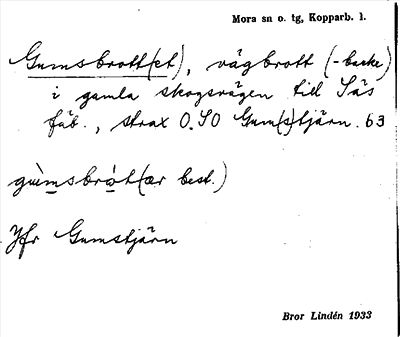 Mora sn o. tg, Kopparb. l.
Gumsbrott(et), vägbrott (-backe)
i gamla skogsvägen till Säs
fäb., strax O.SO Gum(s)tjärn. 63
gùmsbròt(ær best.)
Jfr Gumstjärn
Bror Lindén 1933